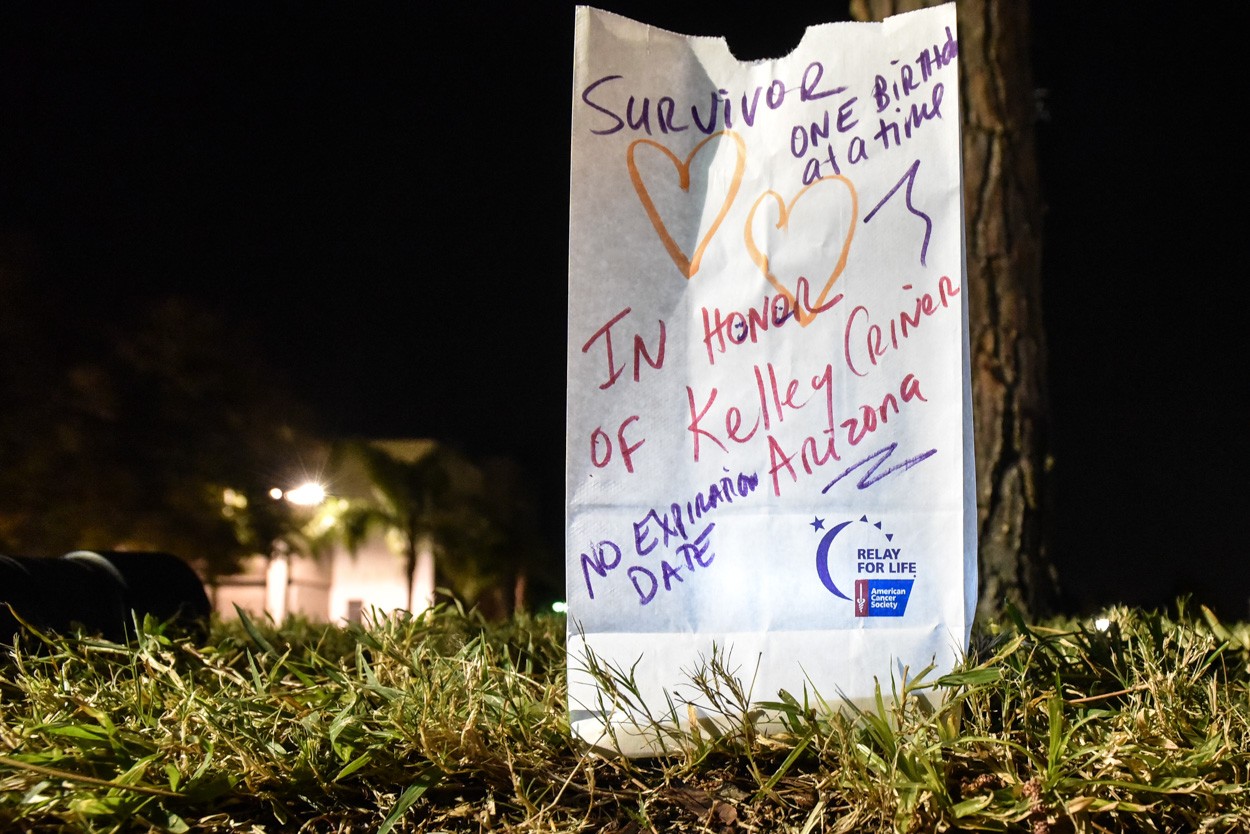 SURVIVOR
ONE BIRTHd
at a time
IN HONOR
OF Kelley CRINER
Arizona
NO EXPIRATION
DATE
RELAY
FOR LIFE
American
Cancer
Society